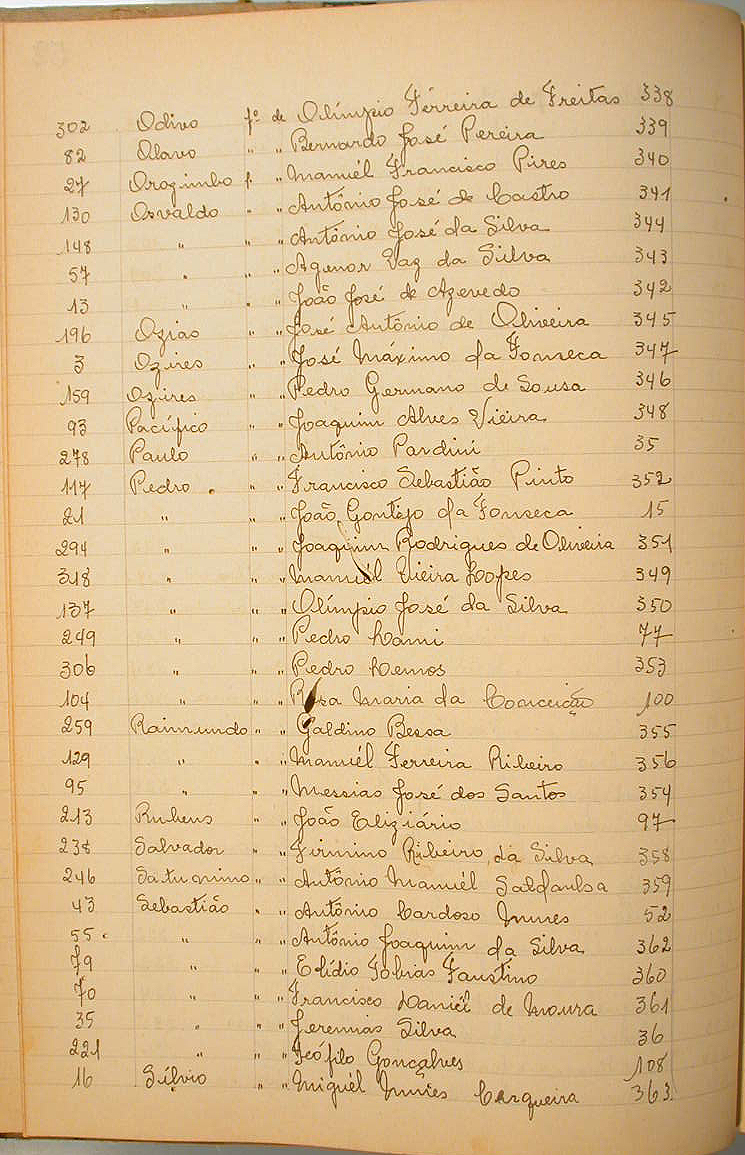 302 Odivo fº de Olímpio Ferreira de Freitas 338
82 Olavo " " Bernardo José Pereira 339
27 Orozimbo f. " Manuél Francisco Pires 340
130 Osvaldo " " Antônio José de Castro 341
148 " " " Antônio José da Silva 344
57 " " " Agenor Vaz da Silva 343
13 " " " João José de Azevedo 342
196 Ozias " " José Antônio de Oliveira 345
3 Ozires " " José Máximo da Fonseca 347
159 Ozires " " Pedro Germano de Sousa 346
93 Pacífico " " Joaquim Alves Vieira 348
278 Paulo " " Antônio Pardini 35
117 Pedro " " Francisco Sebastião Pinto 352
21 " " " João Gontijo da Fonseca 15
294 " " " Joaquim Rodrigues de Oliveira 351
318 " " " Manuél Vieira Lopes 349
137 " " " Olímpio José da Silva 350
249 " " " Pedro Lami 77
306 " " " Pedro Lemos 353
104 " " " Rosa Maria da Conceição 100
259 Raimundo " " Galdino Bessa 355
129 " " " Manuél Ferreira Ribeiro 356
95 " " " Messias José dos Santos 354
213 Rubens " " João Eliziário 97
238 Salvador " " Firmino Ribeiro da Silva 358
246 Saturnino " " Antônio Manuél Saldanha 359
43 Sebastião " " Antônio Cardoso Nunes 52
55 " " " Antônio Joaquim da Silva 362
79 " " " Elídio Tobias Faustino 360
70 " " " Francisco Daniel de Moura 361
35 " " " Jeremias Silva 36
221 " " " Teófilo Gonçalves 108
16 Sílvio " " Miguél Nunes Cerqueira 363